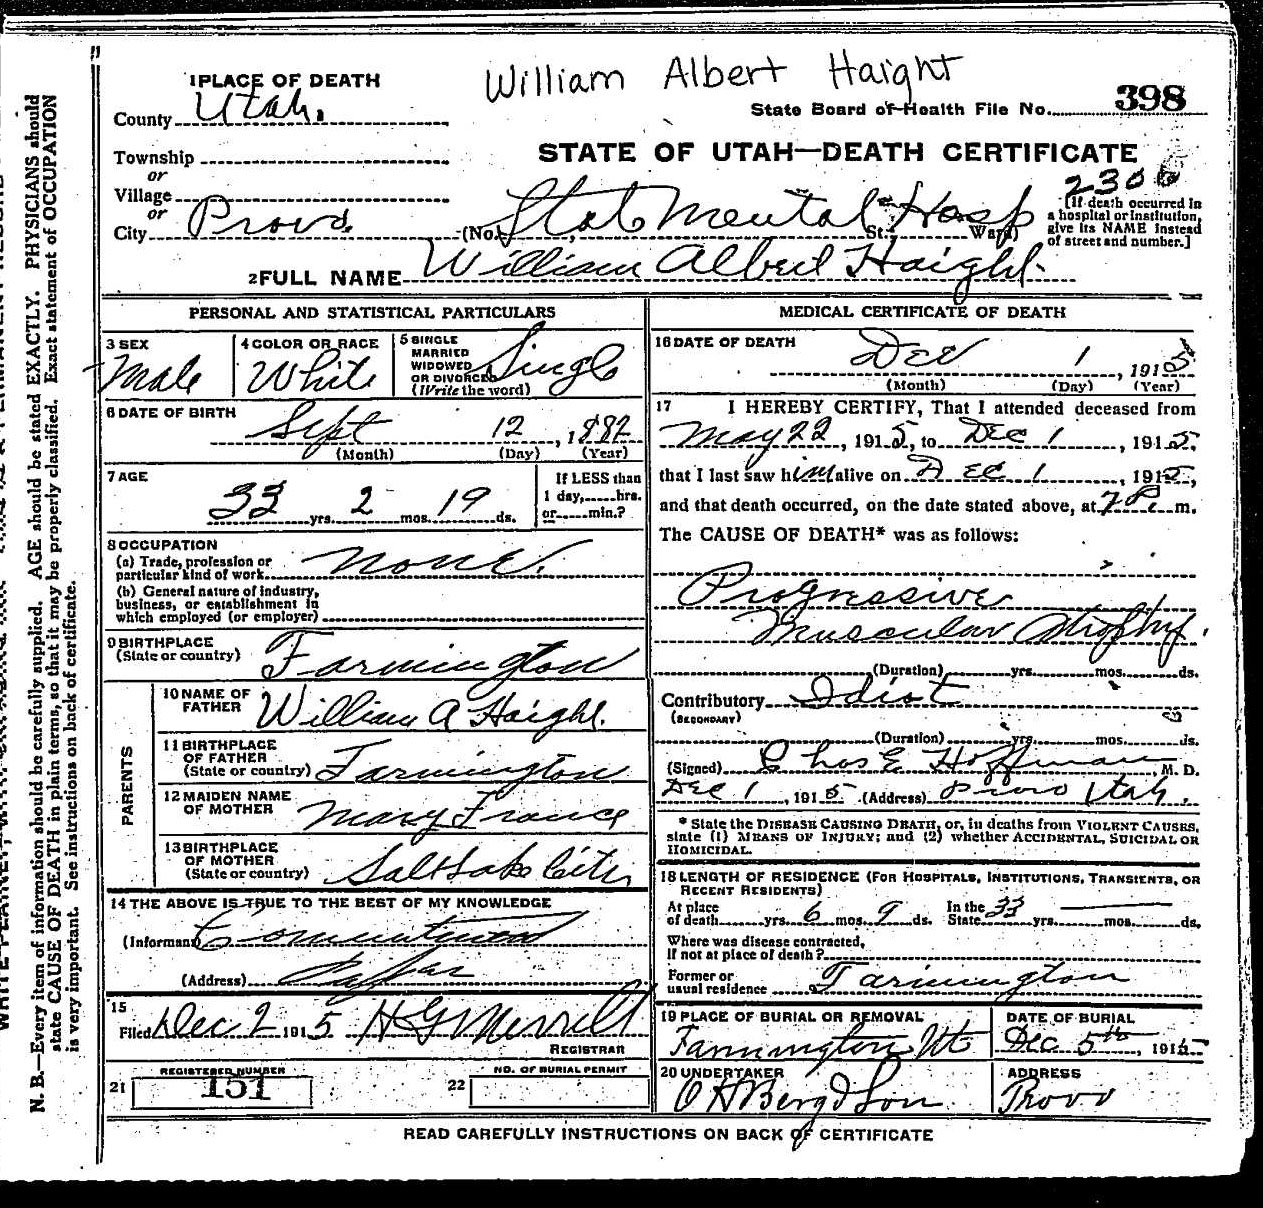 William Albert Haight
1 PLACE OF DEATH
County Utah.
State Board of Health File No. 398
Township
or
Village
or
City Provo.
STATE OF UTAH—DEATH CERTIFICATE
2306
(No. State Mental Hosp St.; Ward)
[If death occurred in
a hospital or institution,
give its NAME instead
of street and number.]
2 FULL NAME William Albert Haight.
PERSONAL AND STATISTICAL PARTICULARS
3 SEX
Male
4 COLOR OR RACE
White
5 SINGLE
MARRIED
WIDOWED
OR DIVORCED
(Write the word)
Single
6 DATE OF BIRTH
Sept 12, 1882
(Month) (Day) (Year)
7 AGE
33 yrs. 2 mos. 19 ds.
If LESS than
1 day, hrs.
or min.?
8 OCCUPATION
(a) Trade, profession or
particular kind of work none.
(b) General nature of industry,
business, or establishment in
which employed (or employer)
9 BIRTHPLACE
(State or country) Farmington
PARENTS
10 NAME OF
FATHER William A Haight.
11 BIRTHPLACE
OF FATHER
(State or country) Farmington
12 MAIDEN NAME
OF MOTHER Mary France
13 BIRTHPLACE
OF MOTHER
(State or country) Salt Lake City
14 THE ABOVE IS TRUE TO THE BEST OF MY KNOWLEDGE
(Informant)
(Address)
15
Filed Dec 2 1915 H G Merrill
REGISTRAR
21 REGISTERED NUMBER
151
22 NO. OF BURIAL PERMIT
MEDICAL CERTIFICATE OF DEATH
16 DATE OF DEATH
Dec 1, 1915
(Month) (Day) (Year)
17 I HEREBY CERTIFY, That I attended deceased from
May 22, 1915, to Dec 1, 1915.
that I last saw him alive on Dec 1, 1915,
and that death occurred, on the date stated above, at 7 P. m.
The CAUSE OF DEATH* was as follows:
Progressive
Muscular Atrophy.
(Duration) yrs. mos. ds.
Contributory Idiot
(SECONDARY)
(Duration) yrs. mos. ds.
(Signed) Chas E Hoffman, M. D.
Dec 1, 1915 (Address) Provo Utah.
* State the DISEASE CAUSING DEATH, or, in deaths from VIOLENT CAUSES,
state (1) MEANS OF INJURY; and (2) whether ACCIDENTAL, SUICIDAL OR
HOMICIDAL.
18 LENGTH OF RESIDENCE (FOR HOSPITALS, INSTITUTIONS, TRANSIENTS, OR
RECENT RESIDENTS)
At place
of death yrs. 6 mos. 9 ds. In the
State 33 yrs. mos. ds.
Where was disease contracted,
If not at place of death?
Former or
usual residence Farmington
19 PLACE OF BURIAL OR REMOVAL
Farmington Ut
DATE OF BURIAL
Dec 5th, 1915
20 UNDERTAKER
O H Berg & Son
ADDRESS
Provo
READ CAREFULLY INSTRUCTIONS ON BACK OF CERTIFICATE
N. B.—Every item of information should be carefully supplied. AGE should be stated EXACTLY. PHYSICIANS should
state CAUSE OF DEATH in plain terms, so that it may be properly classified. Exact statement of OCCUPATION
is very important. See instructions on back of certificate.